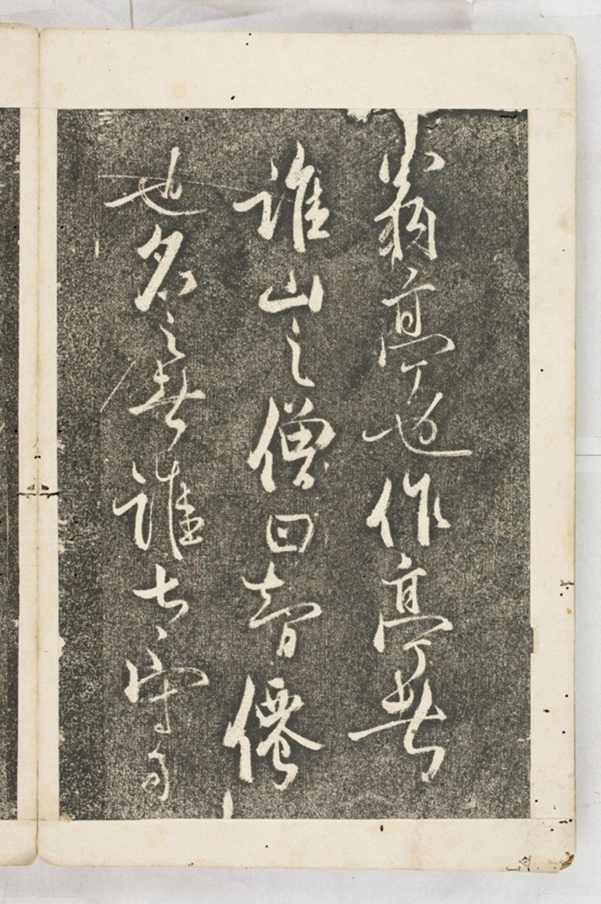 翁亭也作亭者
誰山之僧曰智僊
也名之者誰太守自